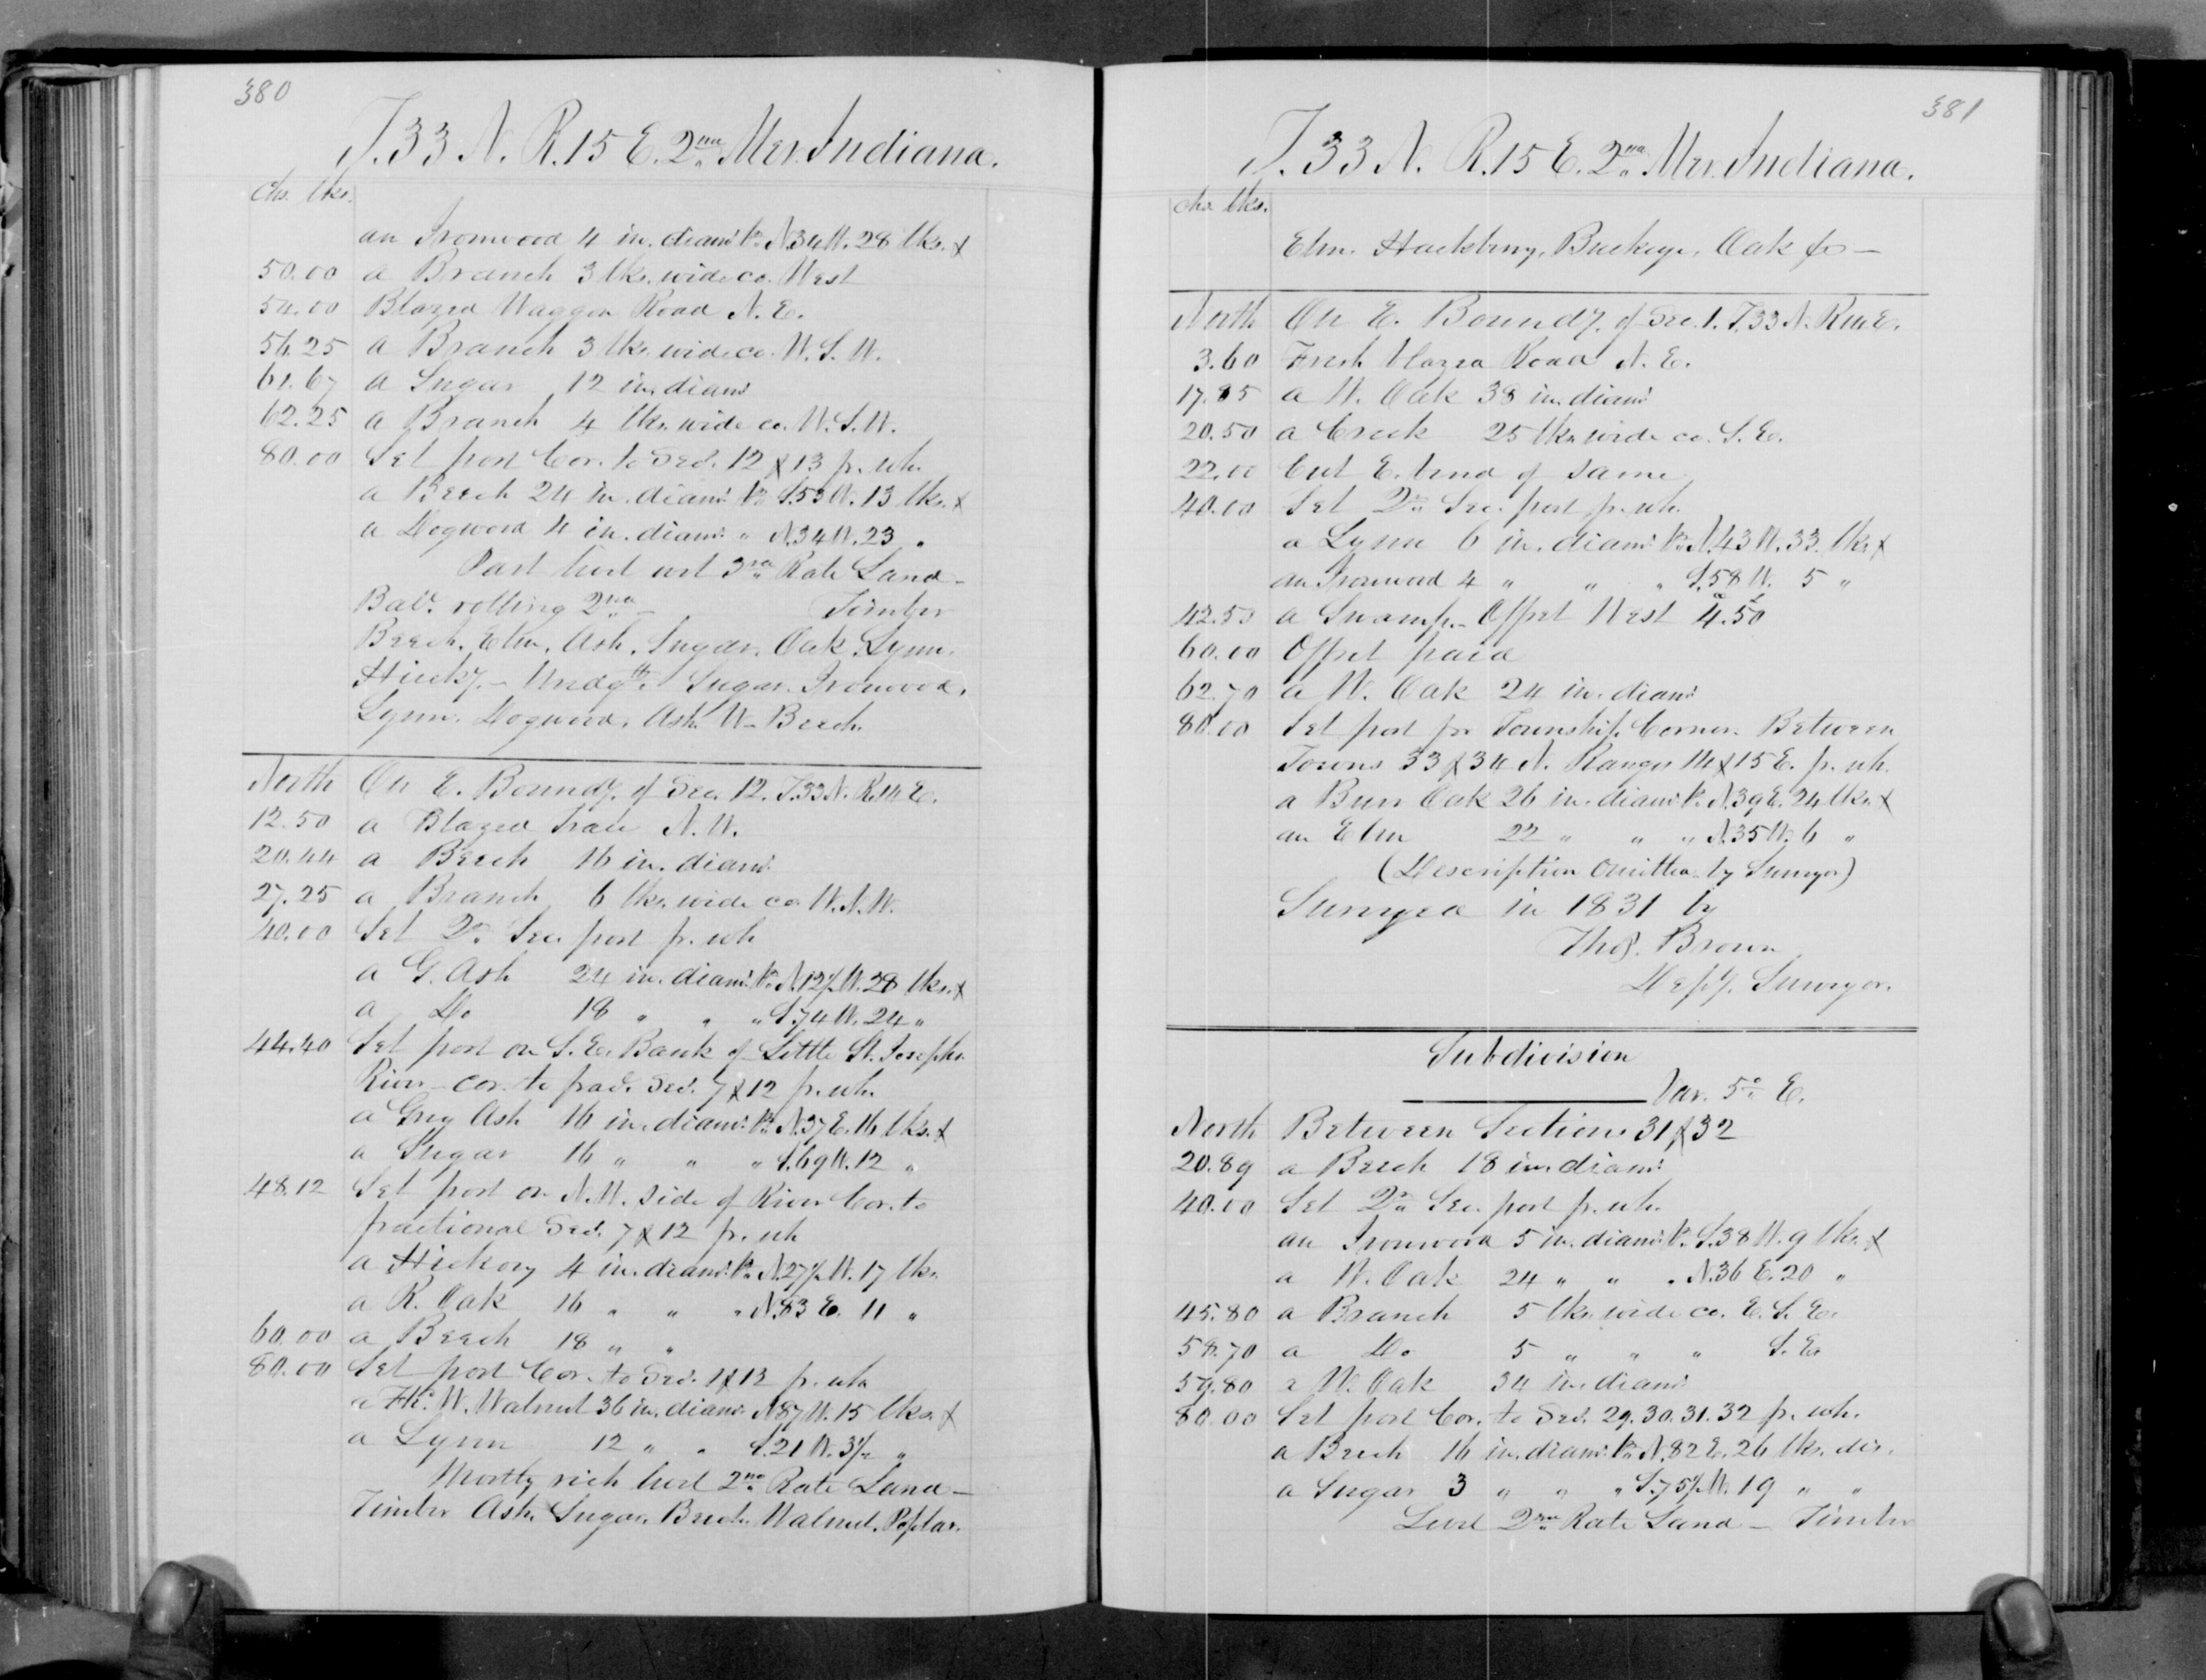 380
T. 33 N. R. 15 E. 2nd Mer. Indiana.
chs. lks.
an Ironwood 4 in. diamr. Br. N. 34 W. 28 lks. &
50.00 a Branch 3 lks. wide co. West
54.00 Blazed Waggon Road N. E.
56.25 a Branch 3 lks. wide co. W. S. W.
61.67 a Sugar 12 in. diamr.
62.25 a Branch 4 lks. wide co. W. S. W.
80.00 Set post Cor. to Secs. 12 & 13 fr. wh.
a Beech 24 in. diamr. Br. S. 53 W. 13 lks. &
a Dogwood 4 in. diamr. " N. 34 W. 23 "
Part level wet 3rd Rate Land –
Bale. rolling 2nd – Timber
Beech, Elm, Ash, Sugar, Oak, Lynn,
Hicky. – Undgth. Sugar, Ironwood,
Lynn, Dogwood, Ash, W. Beech.
North On E. Boundy. of Sec. 12. T. 33 N. R. 14 E.
12.50 a Blazed Trace N. W.
20.44 a Beech 16 in. diamr.
27.25 a Branch 6 lks. wide co. W. N. W.
40.00 Set Qr. Sec. post fr. wh
a G. Ash 24 in. diamr. Br. N. 12½ W. 28 lks. &
a Do 18 " " " S. 74 W. 24 "
44.40 Set post on S. E. Bank of Little St. Josephs
River – cor. to fracl. Secs. 7 & 12 fr. wh.
a Grey Ash 16 in. diamr. Br. N. 37 E. 16 lks. &
a Sugar 16 " " " S. 69 W. 12 "
48.12 Set post on N. W. side of River Cor. to
fractional Secs. 7 & 12 fr. wh
a Hickory 4 in. diamr. Br. N. 27½ W. 17 lks.
a R. Oak 16 " " " N. 83 E. 11 "
60.00 a Beech 18 " "
80.00 Set post Cor. to Secs. 1 & 12 fr. wh
a W. Walnut 36 in. diamr. N 87 W. 15 lks. &
a Lynn 12 " " S. 21 W. 3½ "
Mostly rich level 2nd Rate Land –
Timber Ash, Sugar, Beech, Walnut, Poplar.
381
T. 33 N. R. 15 E. 2nd Mer. Indiana.
chs. lks.
Elm, Hackberry, Buckeye, Oak &c –
North On E. Boundy. of Sec. 1. T. 33 N. R. 14 E.
3.60 Fresh blazed Road N. E.
17.85 a W. Oak 38 in. diamr.
20.50 a Creek 25 lks. wide co. S. E.
22.00 Cut E. bend of same
40.00 Set Qr. Sec. post fr. wh.
a Lynn 6 in. diamr. Br. N. 43 W. 33 lks &
an Ironwood 4 " " " S. 58 W. 5 "
42.50 a Swamp – Offset West 4.50
60.00 Offset paid
62.70 a W. Oak 24 in. diamr.
80.00 Set post for Township Corner. Between
Towns 33 & 34 N. Ranges 14 & 15 E. fr. wh.
a Burr Oak 26 in. diamr. Br. N. 39 E. 24 lks. &
an Elm 22 " " " N. 35 W. 6 "
(Description omitted by Surveyor)
Surveyed in 1831 by
Thos. Brown
Depy. Surveyor.
Subdivision
Var. 5° E.
North Between Sections 31 & 32
20.89 a Beech 18 in. diamr.
40.00 Set Qr. Sec. post fr. wh.
an Ironwood 5 in. diamr. Br. S. 38 W. 9 lks. &
a W. Oak 24 " " " N. 36 E. 20 "
45.80 a Branch 5 lks. wide co. E. S. E.
58.70 a Do 5 " " " S. E.
59.80 a W. Oak 34 in. diamr.
80.00 Set post Cor. to Secs. 29. 30. 31. 32 fr. wh.
a Beech 16 in. diamr. Br. N. 82 E. 26 lks. dis.
a Sugar 3 " " " S. 75½ W. 19 " "
Level 2nd Rate Land – Timber